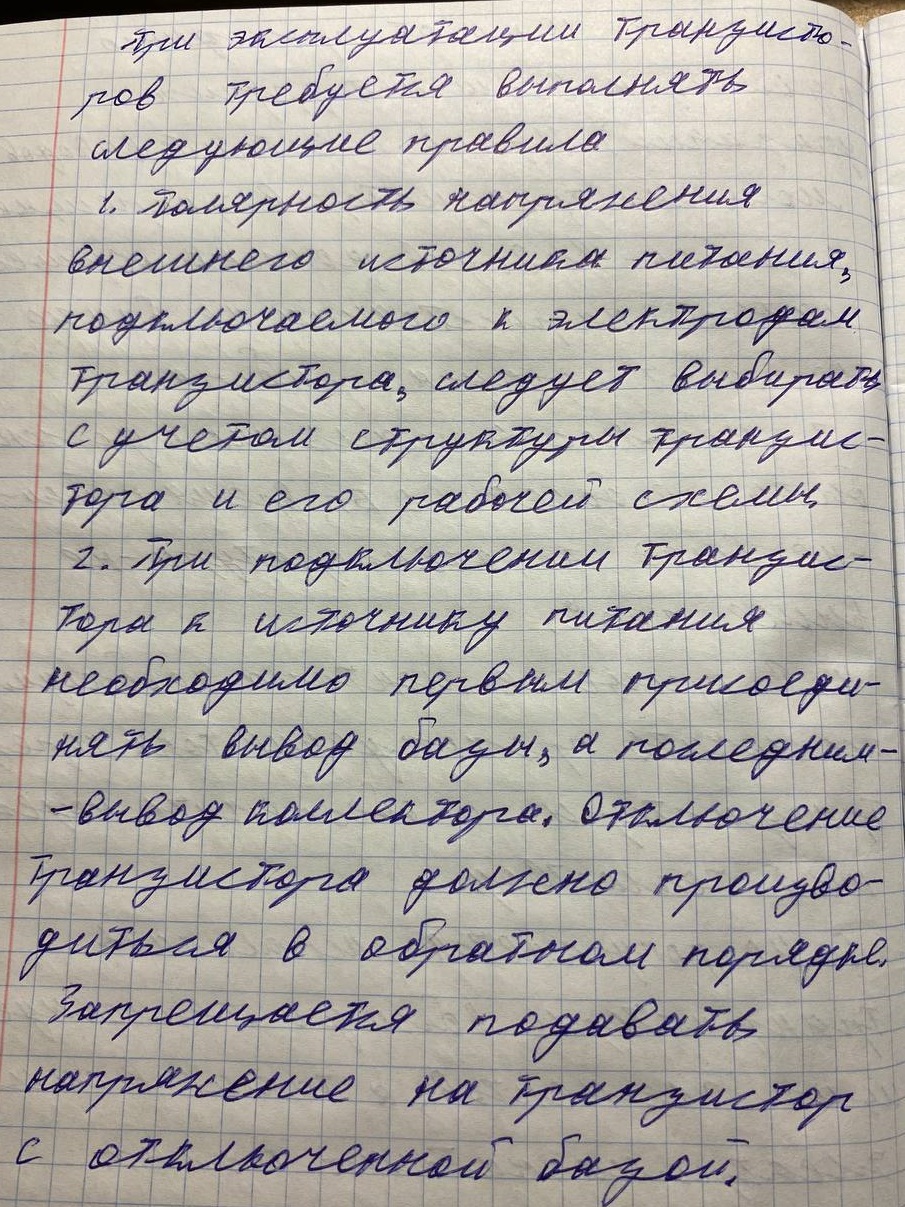 При эксплуатации транзисто-
ров требуется выполнять
следующие правила
1. Полярность напряжения
внешнего источника питания,
подключаемого к электродам
транзистора, следует выбирать
с учетом структуры транзис-
тора и его рабочей схемы
2. При подключении транзис-
тора к источнику питания
необходимо первым присоеди-
нять вывод базы, а последним-
-вывод коллектора. Отключение
транзистора должно произво-
диться в обратном порядке.
Запрещается подавать
напряжение на транзистор
с отключенной базой.